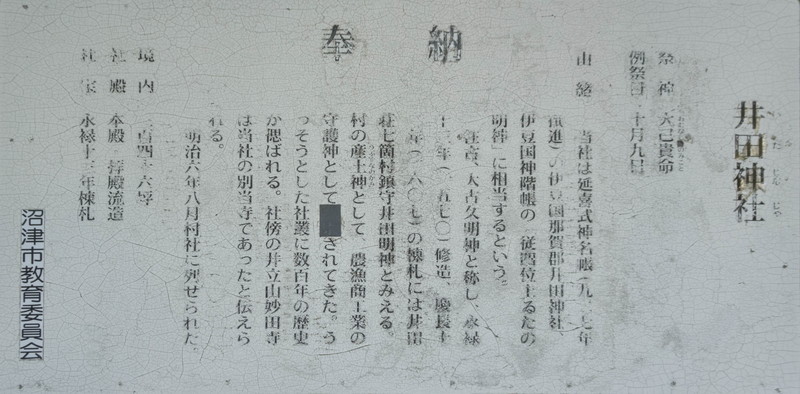 奉納
井田神社
いた じんじゃ
祭神 大己貴命
例祭日 十月九日
由緒 当社は延喜式神名帳(九二七年
撰進)の伊豆国那賀郡井田神社、
伊豆国神階帳の「従四位上るたの
明神」に相当するという。
往古、大古久明神と称し、永禄
十三年(一五七〇)修造、慶長十
二年(一六〇七)の棟札には井田
荘七箇村鎮守井田明神とみえる。
村の産土神として、農漁商工業の
守護神として されてきた。う
っそうとした社叢に数百年の歴史
が偲ばれる。社傍の井立山妙田寺
は当社の別当寺であったと伝えら
れる。
明治六年八月村社に列せられた。
境内 二百四十六坪
社殿 本殿 拝殿流造
社宝 永禄十三年棟札
沼津市教育委員会